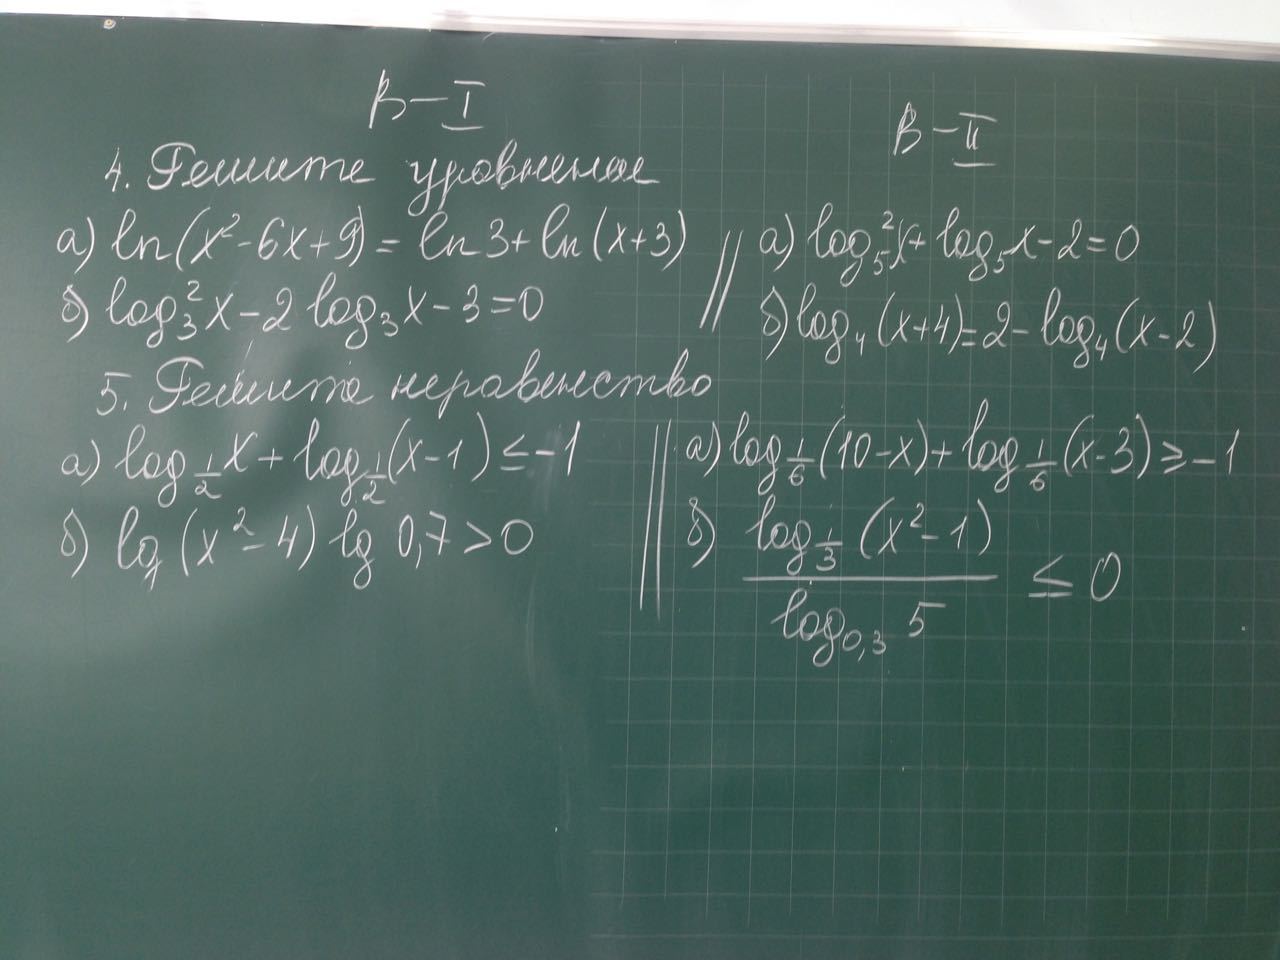 В-I
4. Решите уравнение
а) ln(x²-6x+9) = ln3 + ln(x+3)
б) log₃²x - 2log₃x - 3 = 0
5. Решите неравенство
а) log_{1/2}x + log_{1/2}(x-1) ≤ -1
б) lg(x²-4) lg 0,7 > 0
В-II
а) log₅²x + log₅x - 2 = 0
б) log₄(x+4) = 2 - log₄(x-2)
а) log_{1/6}(10-x) + log_{1/6}(x-3) ≥ -1
б) log_{1/3}(x²-1)
log_{0,3} 5
≤ 0